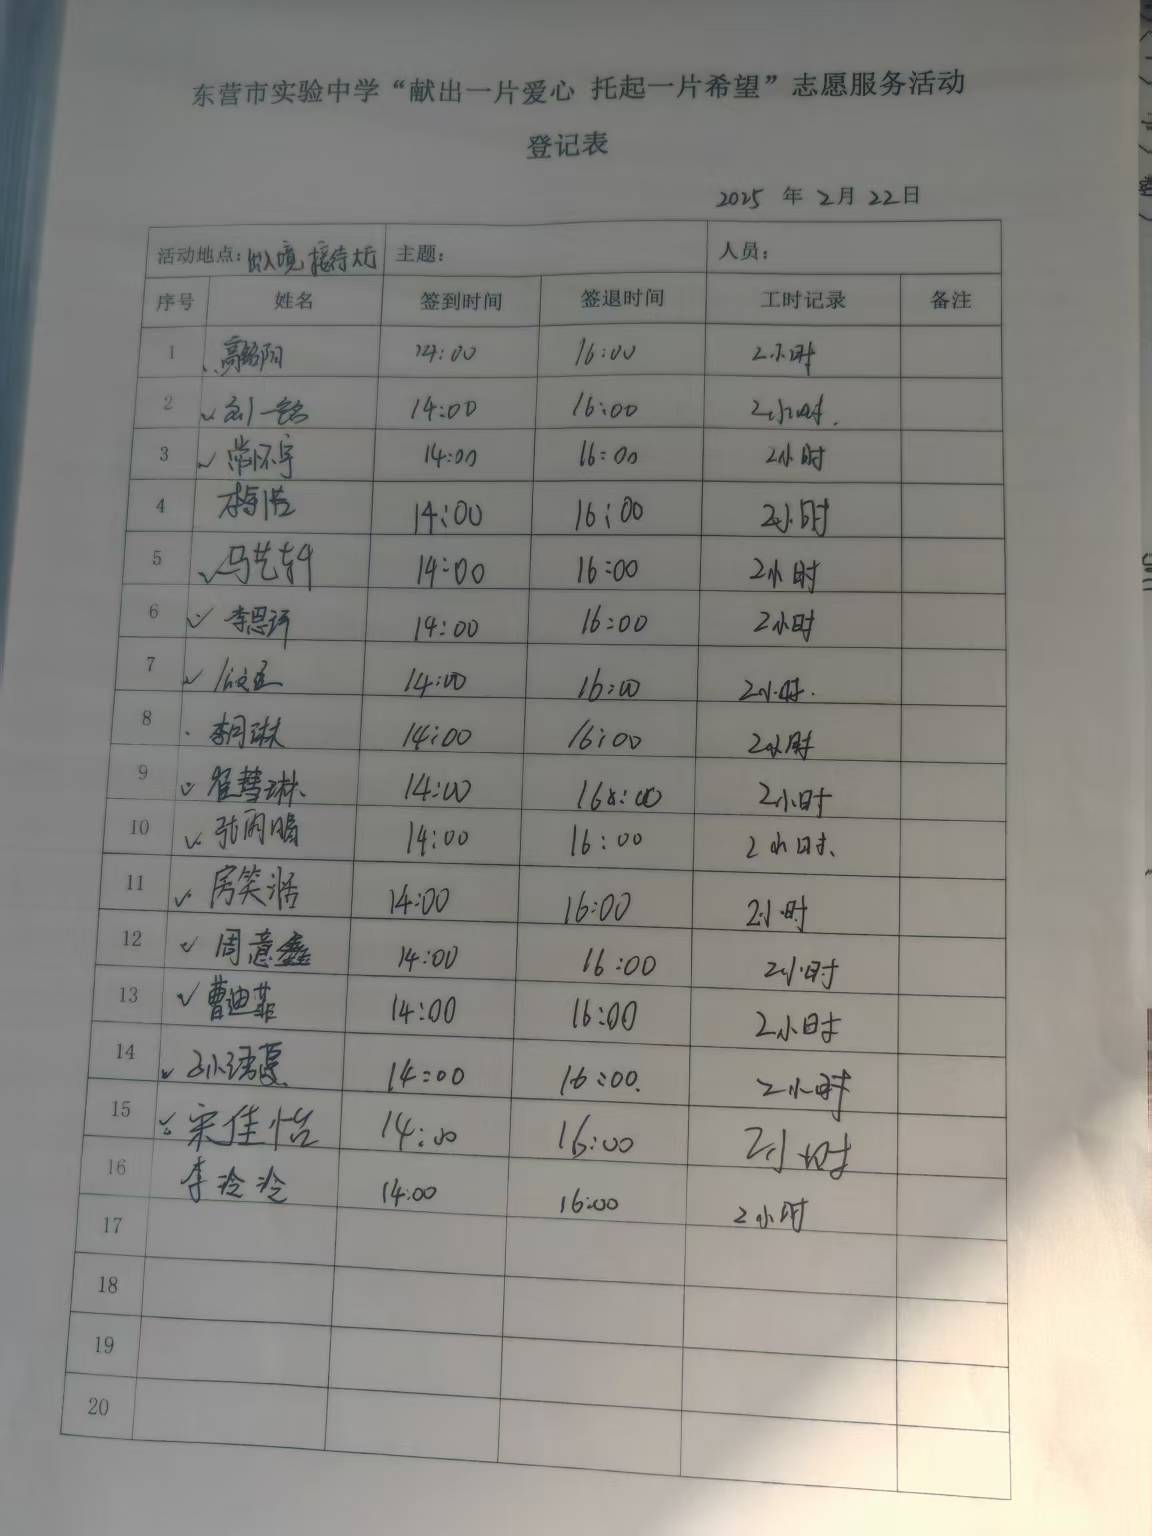 东营市实验中学“献出一片爱心 托起一片希望”志愿服务活动
登记表
2025 年 2月 22日
活动地点：出入境接待大厅 主题： 人员：
序号 姓名 签到时间 签退时间 工时记录 备注
1 14:00 16:00 2小时
2 刘一铭 14:00 16:00 2小时.
3 常怀宇 14:00 16:00 2小时
4 14:00 16:00 2小时
5 马艺轩 14:00 16:00 2小时
6 李思评 14:00 16:00 2小时
7 14:00 16:00 2小时.
8 李月琳 14:00 16:00 2小时
9 崔慧琳 14:00 16:00 2小时
10 张雨鹏 14:00 16:00 2小时.
11 房笑湉 14:00 16:00 2小时
12 周意鑫 14:00 16:00 2小时
13 曹迪菲 14:00 16:00 2小时
14 14:00 16:00. 2小时
15 宋佳怡 14:00 16:00 2小时
16 李泠泠 14:00 16:00 2小时
17
18
19
20